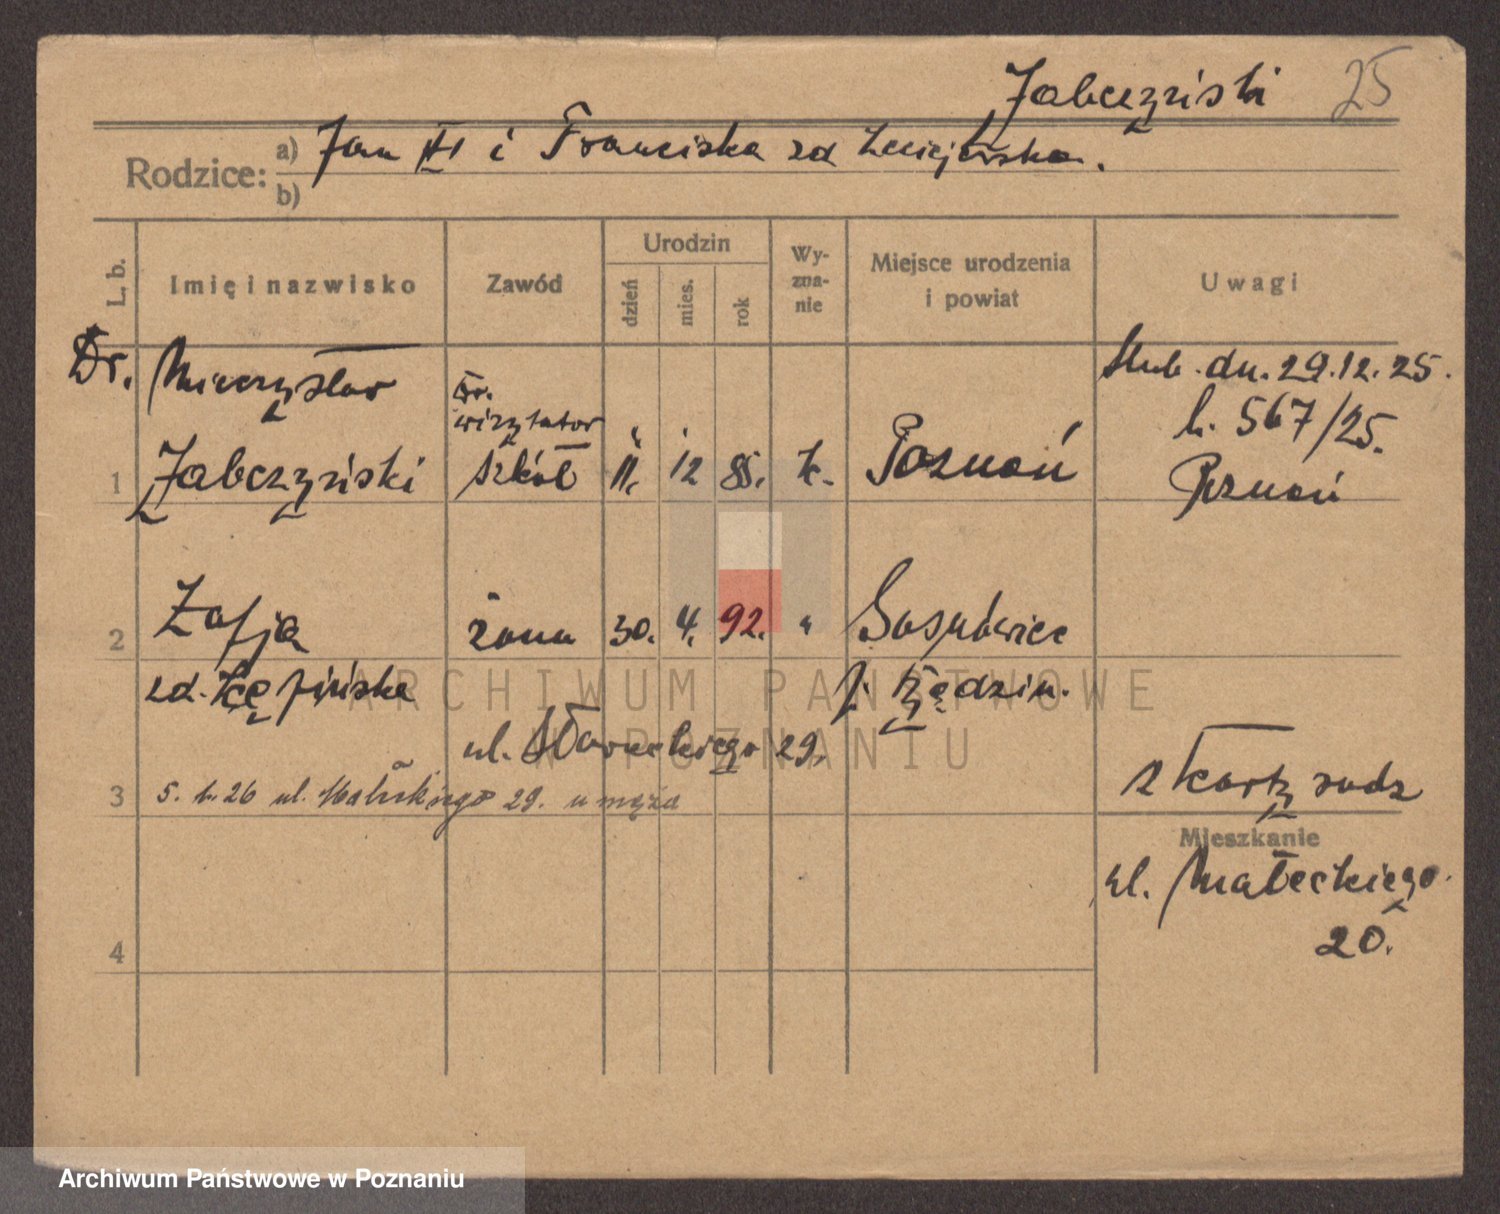 Jabczyński 25
Rodzice: a) Jan III i Franciska zd
b)
L. b. Imię i nazwisko Zawód Urodzin dzień mies. rok Wyznanie Miejsce urodzenia i powiat Uwagi
Dr. Mieczysław
wizytator
1 Jabczyński szkół 11. 12 85. k. Poznań
ślub. dn. 29.12.25.
l. 567/25.
Poznań
2 Zofja żona 30. 4. 92. " Sosnowiec
zd. Kępińska p. Będzin.
ul. 29.
3 5. 1. 26 ul. Małeckiego 29. u męża
z karty rodz
Mieszkanie
ul. Małeckiego
20.
4
ARCHIWUM PAŃSTWOWE
W POZNANIU
Archiwum Państwowe w Poznaniu